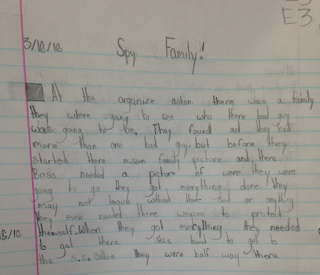 E3
3/10/18
Spy Family!
At the organize ation there was a family
they where going to see who there bad guy
was going to be. They found out they had
more than one bad guy but before they
started there mision family picture and there
Boss needed a picture of were they were
going to go they got everything done they
may not leave without there suit or anything
they even needed there weapons to protect
themself. When they got everything they needed
to got there this boat to get to
the they were half way there